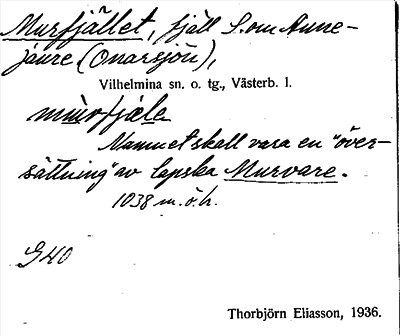 Murfjället, fjäll S. om Aune-
jaure (Onarsjön),
Vilhelmina sn. o. tg., Västerb. l.
mùrfjäle
Namnet skall vara en "över-
sättning" av lapska Murvare.
1038 m. ö. h.
G40
Thorbjörn Eliasson, 1936.